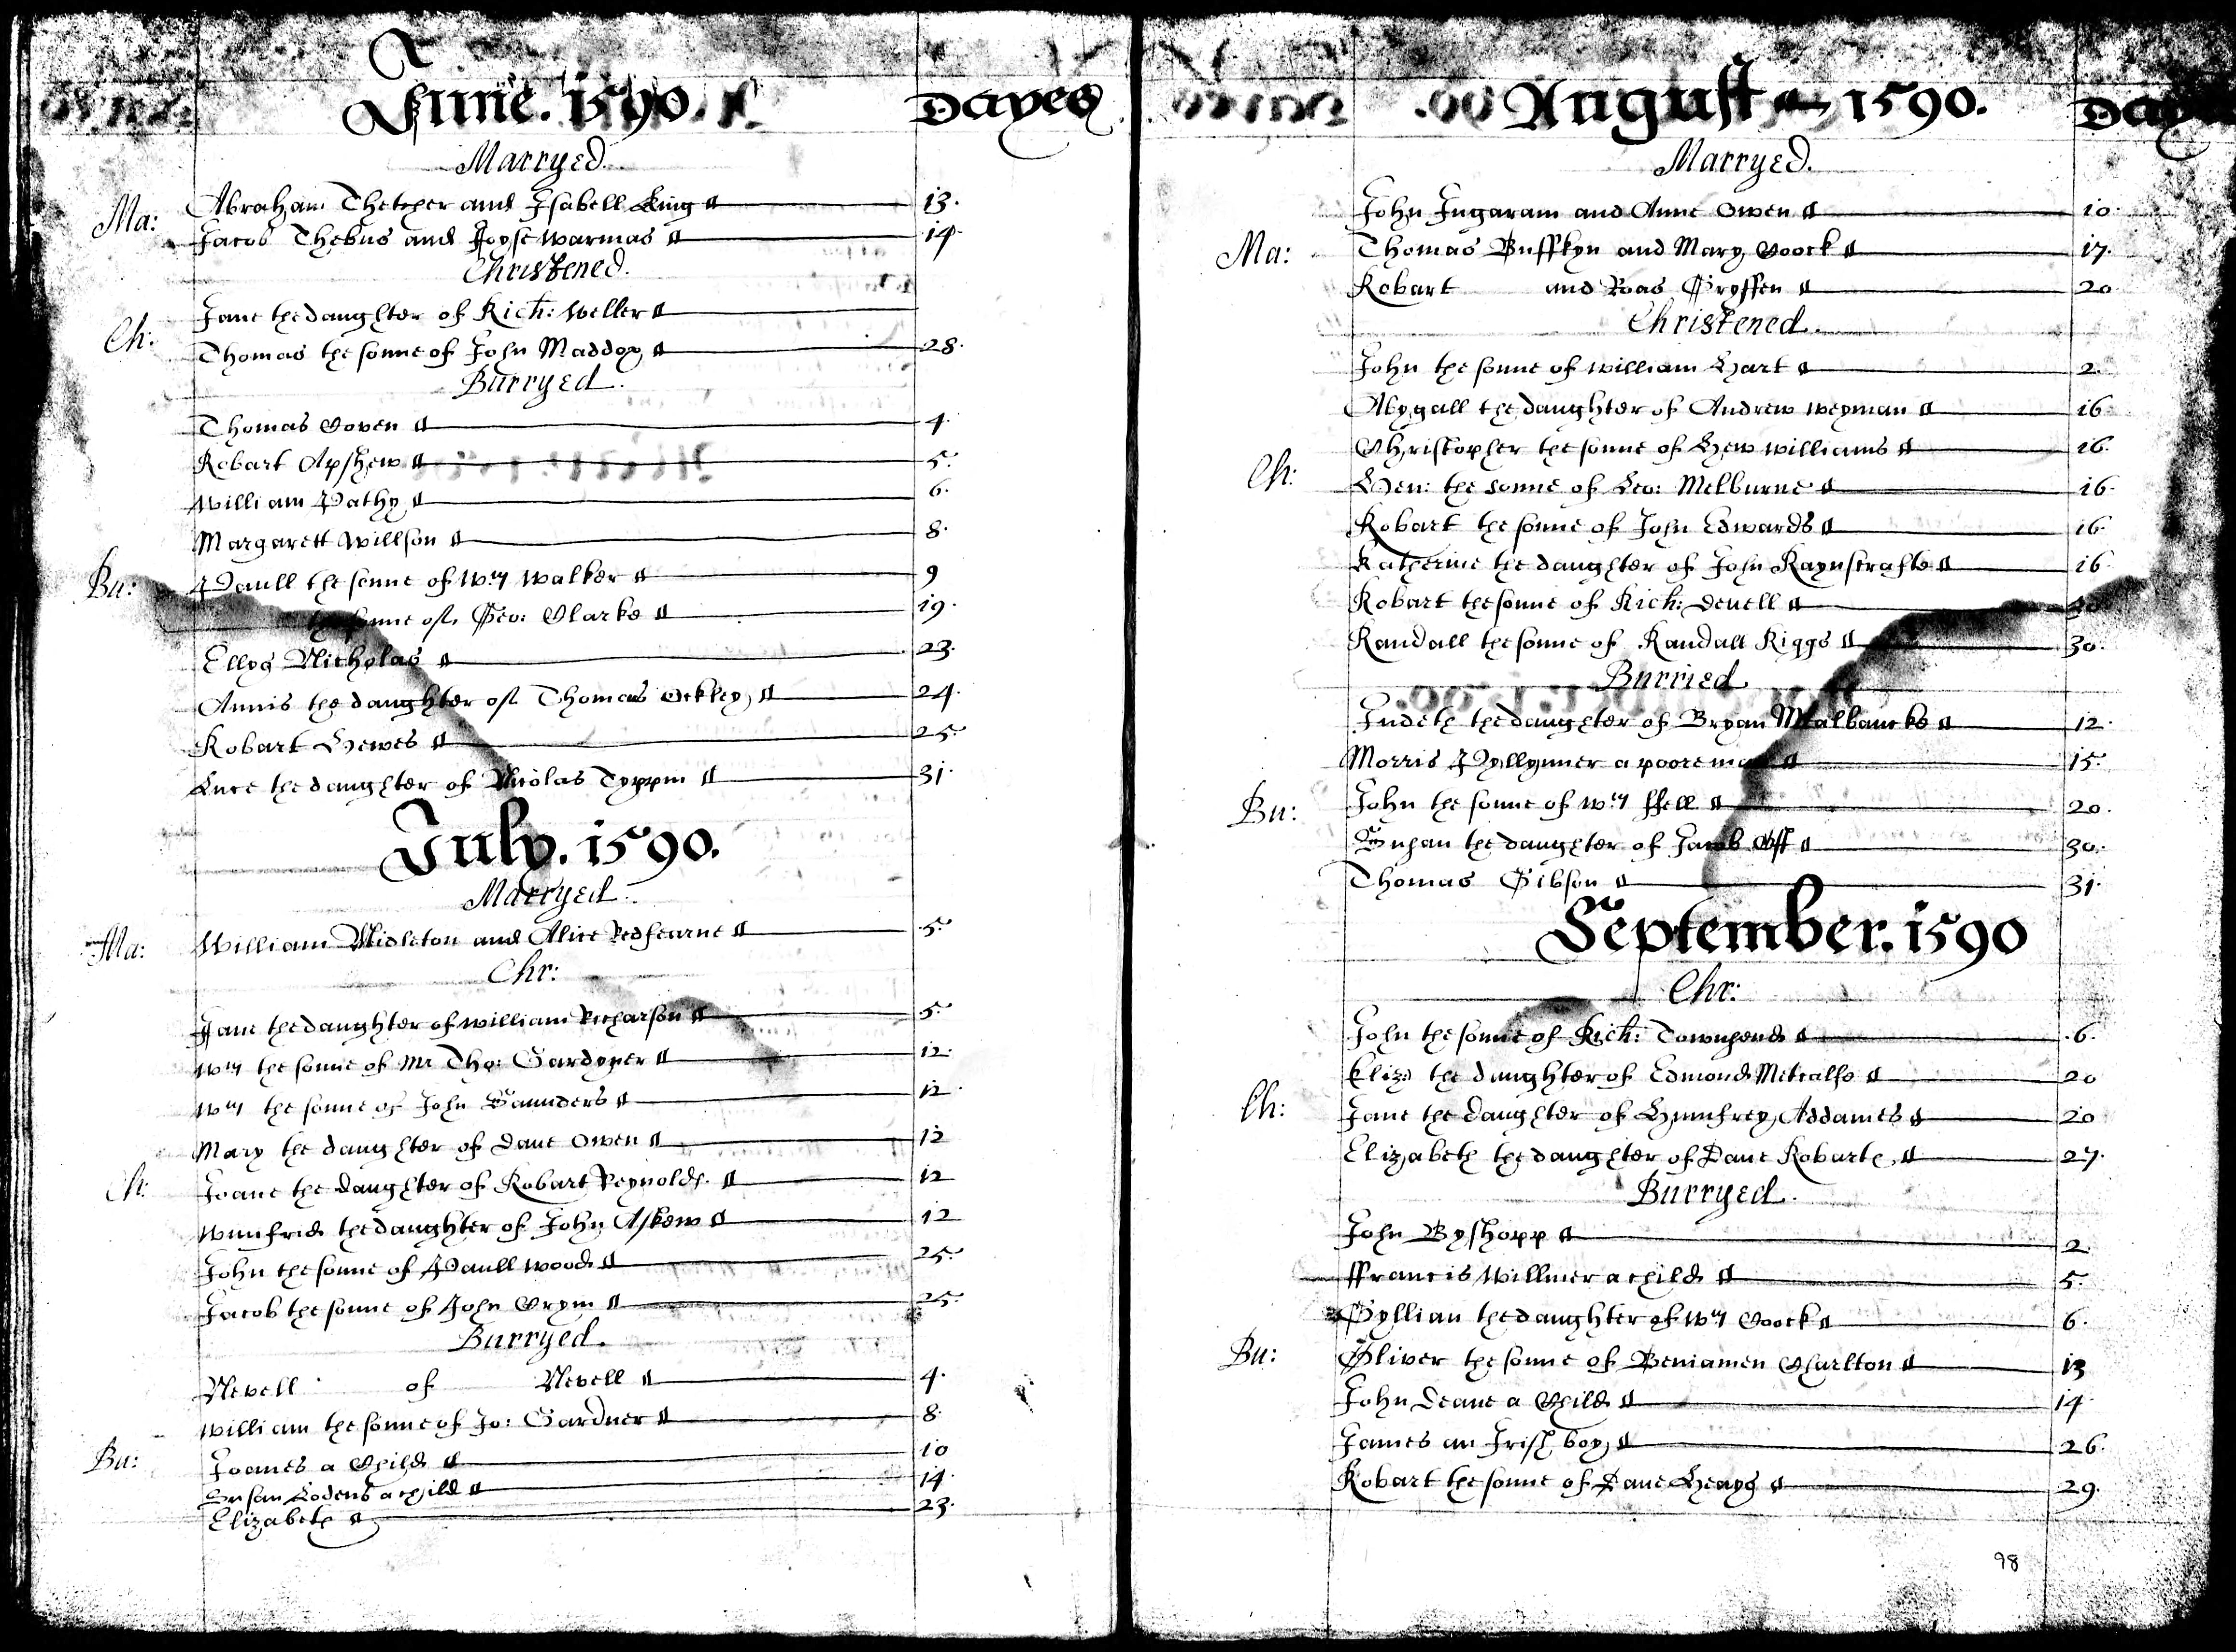 June. 1590.
Dayes
Marryed.
Ma:
Abraham Thetcher and Isabell King 13.
Jacob Thebus and Joyse Warmas 14.
Christened.
Ch:
Jane the daughter of Rich: Weller
Thomas the sonne of John Maddox 28.
Burryed.
Thomas Coven 4.
Robart Apshew 5.
William Pathy 6.
Margarett Willson 8.
Bu:
Paull the sonne of Wm Walker 9
the sonne of Geo: Clarke 19.
Ellys Nicholas 23.
Annis the daughter of Thomas Ockley 24.
Robart Hewes 25.
Luce the daughter of Nicolas Typpin 31.
July. 1590.
Marryed.
Ma:
William Midleton and Alice Redfearne 5.
Chr:
Jane the daughter of William Richarson 5.
Wm the sonne of Mr Tho: Gardyner 12.
Wm the sonne of John Saunders 12.
Mary the daughter of Dave Owen 12
Ch:
Joane the daughter of Robart Reynolds. 12
Winifrid the daughter of John Askew 12
John the sonne of Paull Wood 25.
Jacob the sonne of John Crym 25.
Burryed.
Nevell of Nevell 4.
William the sonne of Jo: Gardner 8.
Bu:
Joanes a Child 10
Susan Lodens a child 14.
Elizabeth 23.
August 1590.
Marryed.
John Ingaram and Anne Owen 10.
Ma:
Thomas Buffkyn and Mary Coock 17.
Robart and Roas Gryffen 20.
Christened.
John the sonne of William Hart 2.
Abygall the daughter of Andrew Weyman 16.
Christopher the sonne of Hew Williams 16.
Ch:
Hen: the sonne of Leo: Melburne 16.
Robart the sonne of John Edwards 16.
Katherine the daughter of John Raynscrafte 16.
Robart the sonne of Rich: Devell
Randall the sonne of Randall Riggs 30.
Burried
Judeth the daughter of Bryan Malbancke 12.
Morris Pyllynner a poore man 15.
Bu:
John the sonne of Wm ffell 20.
Susan the daughter of Jacob Off 30.
Thomas Gibson 31.
September. 1590
Chr:
John the sonne of Rich: Townsend 6.
Eliz: the daughter of Edmond Metcalfe 20
Ch:
Jane the daughter of Humfrey Addames 20
Elizabeth the daughter of Dave Robarts 27.
Burryed.
John Byshopp 2.
ffrancis Willmer a child 5.
Gyllian the daughter of Wm Coock 6.
Bu:
Oliver the sonne of Beniamen Charlton 13
John Deane a Child 14
James an Irish boy 26.
Robart the sonne of Dave Heays 29.
98